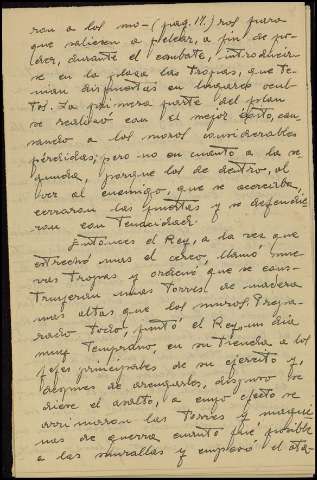 ran a los mo- (pag. 11.) ros para
que saliesen a pelear, a fin de po-
der, durante el combate, introducir-
se en la plaza las tropas, que te-
nian dispuestas en lugares ocul-
tos. La primera parte del plan
se realizó con el mejor éxito, cau-
sando a los moros considerables
pérdidas; pero no en cuanto a la se-
gunda, porque los de dentro, al
ver al enemigo, que se acercaba,
cerraron las puertas y se defendie
ron con tenacidad.
Entonces el Rey, a la vez que
estrechó mas el cerco, llamó nue-
vas tropas y ordenó que se cons-
truyeran unas torres de madera
mas altas que los muros. Prepa-
rado todo, juntó el Rey, un dia
muy temprano, en su trinchea a los
jefes principales de su ejército y,
despues de arengarlos, dispuso se
diese el asalto, a cuyo efecto se
arrimaron las torres y maqui
nas de guerra cuanto fué posible
a las murallas y empezó el ata-